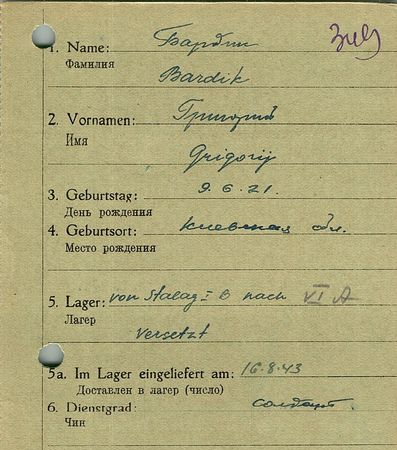 1. Name: Бардик
Фамилия
Bardik
2. Vornamen: Григорий
Имя
Grigorij
3. Geburtstag: 9.6.21.
День рождения
4. Geburtsort: Киевская обл.
Место рождения
5. Lager: von Stalag I B nach VI A
Лагер
versetzt
5a. Im Lager eingeliefert am: 16.8.43
Доставлен в лагер (число)
6. Dienstgrad: солдат
Чин